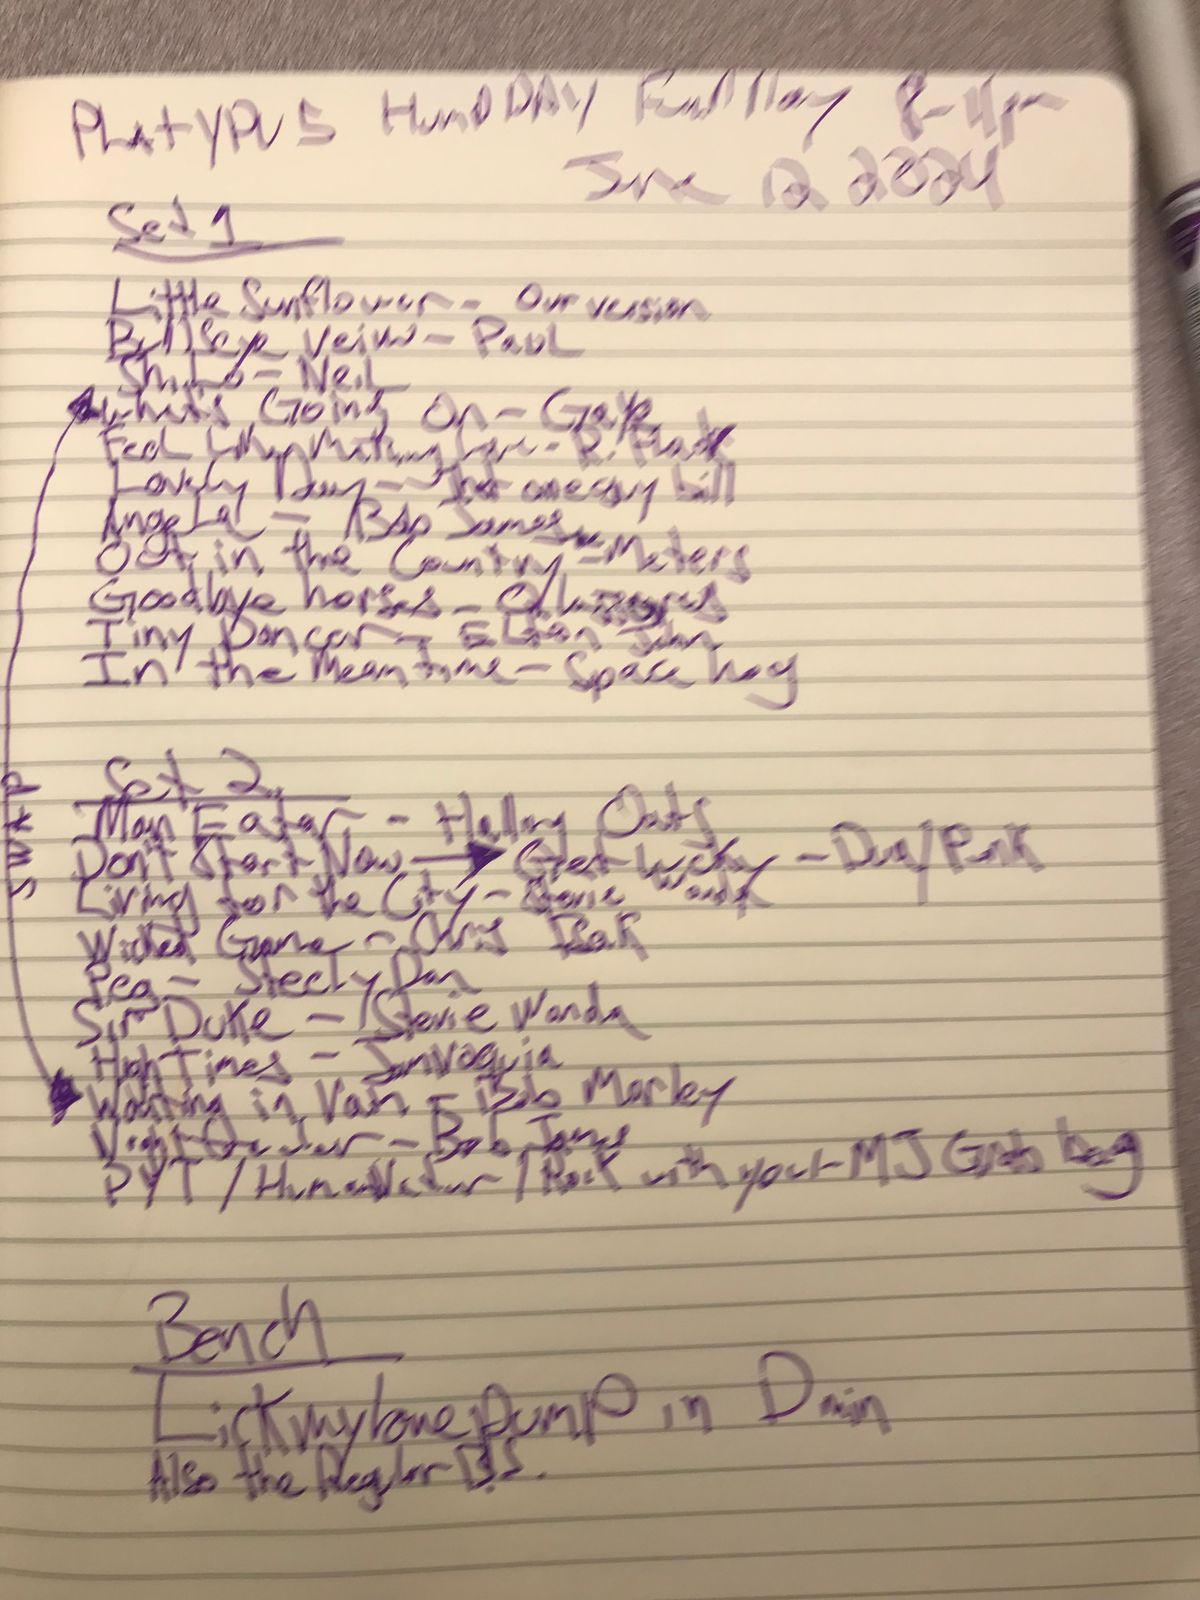 PLatYPUS HumPDAY 8-11pm
June 12 2024
Set 1
Little Sunflower - Our version
Bullseye Veiw - Paul
Shilo - Neil
What's Going On - Gaye
Feel Making Love - R. Flack
Lovely Day - Just one day bill
AngeLa - Bob James
Out in the Country - Meters
Goodbye horses - Q.
Tiny Dancer - Elton John
In the Meantime - Space hog
Set 2
Man Eater - Hall Oats
Don't Start Now → Get Lucky - Dua/Punk
Living for the City - Stevie Wonda
Wicked Game - Chris Isak
Peg - Steely Dan
Sir Duke - Stevie Wonda
High Times - Jamiroquia
Waiting in Vain - Bob Marley
Nightcrawler - Bob James
PYT / Human Natur / Rock with you - MJ Grab bag
SWAP
Bench
Lick my love pump in D min
Also the Reglar B.S.